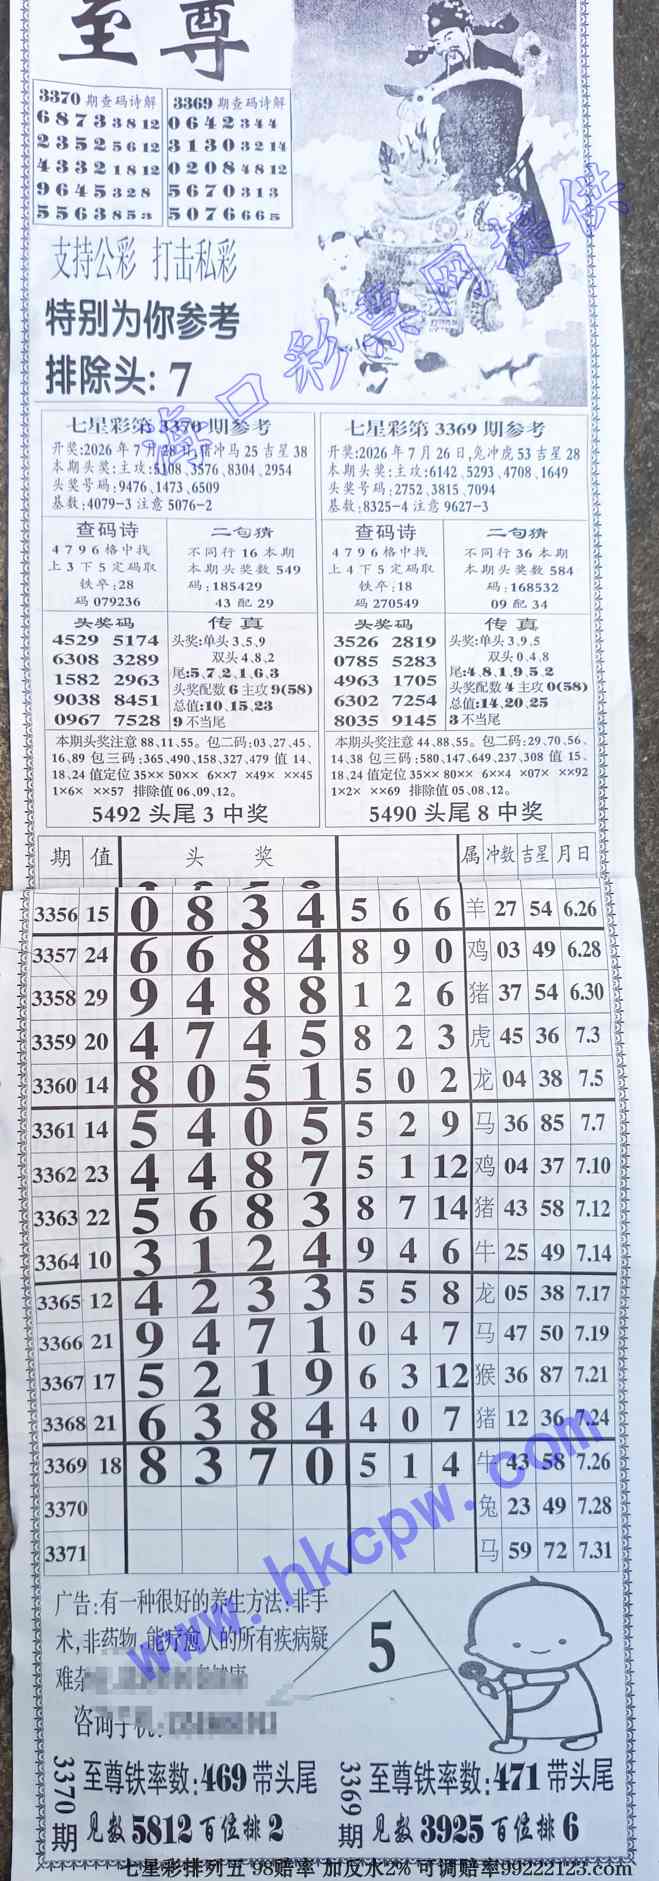 至尊
3370期查码诗解
6873 3 8 12
2352 5 6 12
4332 1 8 12
9645 3 2 8
5563 8 5 3
3369期查码诗解
0642 3 4 4
3130 3 2 14
0208 4 8 12
5670 3 1 3
5076 6 6 5
支持公彩 打击私彩
特别为你参考
排除头:7
海口彩票网提供
七星彩第3370期参考
开奖:2026年7月28日,猪冲马25吉星38
本期头奖:主攻:5108、3576、8304、2954
头奖号码:9476、1473、6509
基数:4079-3注意5076-2
查码诗
4796格中找
上3下5定码取
铁卒:28
码079236
二句猜
不同行16本期
本期头奖数549
码:185429
43配29
头奖码
4529 5174
6308 3289
1582 2963
9038 8451
0967 7528
传真
头奖:单头3、5、9
双头4、8、2
尾:5、7、2、1、6、3
头奖配数6主攻9(58)
总值:10、15、23
9不当尾
本期头奖注意88、11、55。包二码:03、27、45、
16、89包三码:365、490、158、327、479值14、
18、24值定位35×× 50×× 6××7 ×49× ××45
1×6× ××57 排除值06、09、12。
5492头尾3中奖
七星彩第3369期参考
开奖:2026年7月26日,兔冲虎53吉星28
本期头奖:主攻:6142、5293、4708、1649
头奖号码:2752、3815、7094
基数:8325-4注意9627-3
查码诗
4796格中找
上4下5定码取
铁卒:18
码270549
二句猜
不同行36本期
本期头奖数584
码:168532
09配34
头奖码
3526 2819
0785 5283
4963 1705
6302 7254
8035 9145
传真
头奖:单头3、9、5
双头0、4、8
尾:4、8、1、9、5、2
头奖配数4主攻0(58)
总值:14、20、25
3不当尾
本期头奖注意44、88、55。包二码:29、70、56、
14、38包三码:580、147、649、237、308值15、
18、24值定位35×× 80×× 6××4 ×07× ××92
1×2× ××69 排除值05、08、12。
5490头尾8中奖
期 值 头奖 属 冲数 吉星 月日
3356 15 0 8 3 4 5 6 6 羊 27 54 6.26
3357 24 6 6 8 4 8 9 0 鸡 03 49 6.28
3358 29 9 4 8 8 1 2 6 猪 37 54 6.30
3359 20 4 7 4 5 8 2 3 虎 45 36 7.3
3360 14 8 0 5 1 5 0 2 龙 04 38 7.5
3361 14 5 4 0 5 5 2 9 马 36 85 7.7
3362 23 4 4 8 7 5 1 12 鸡 04 37 7.10
3363 22 5 6 8 3 8 7 14 猪 43 58 7.12
3364 10 3 1 2 4 9 4 6 牛 25 49 7.14
3365 12 4 2 3 3 5 5 8 龙 05 38 7.17
3366 21 9 4 7 1 0 4 7 马 47 50 7.19
3367 17 5 2 1 9 6 3 12 猴 36 87 7.21
3368 21 6 3 8 4 4 0 7 猪 12 36 7.24
3369 18 8 3 7 0 5 1 4 牛 43 58 7.26
3370 兔 23 49 7.28
3371 马 59 72 7.31
www.hkcpw.com
广告:有一种很好的养生方法:非手
术,非药物,能疗愈人的所有疾病疑
难杂
咨询手机:
5
3370期
至尊铁率数:469带头尾
见数5812百位排2
3369期
至尊铁率数:471带头尾
见数3925百位排6
七星彩排列五 98赔率 加反水2% 可调赔率99222123.com